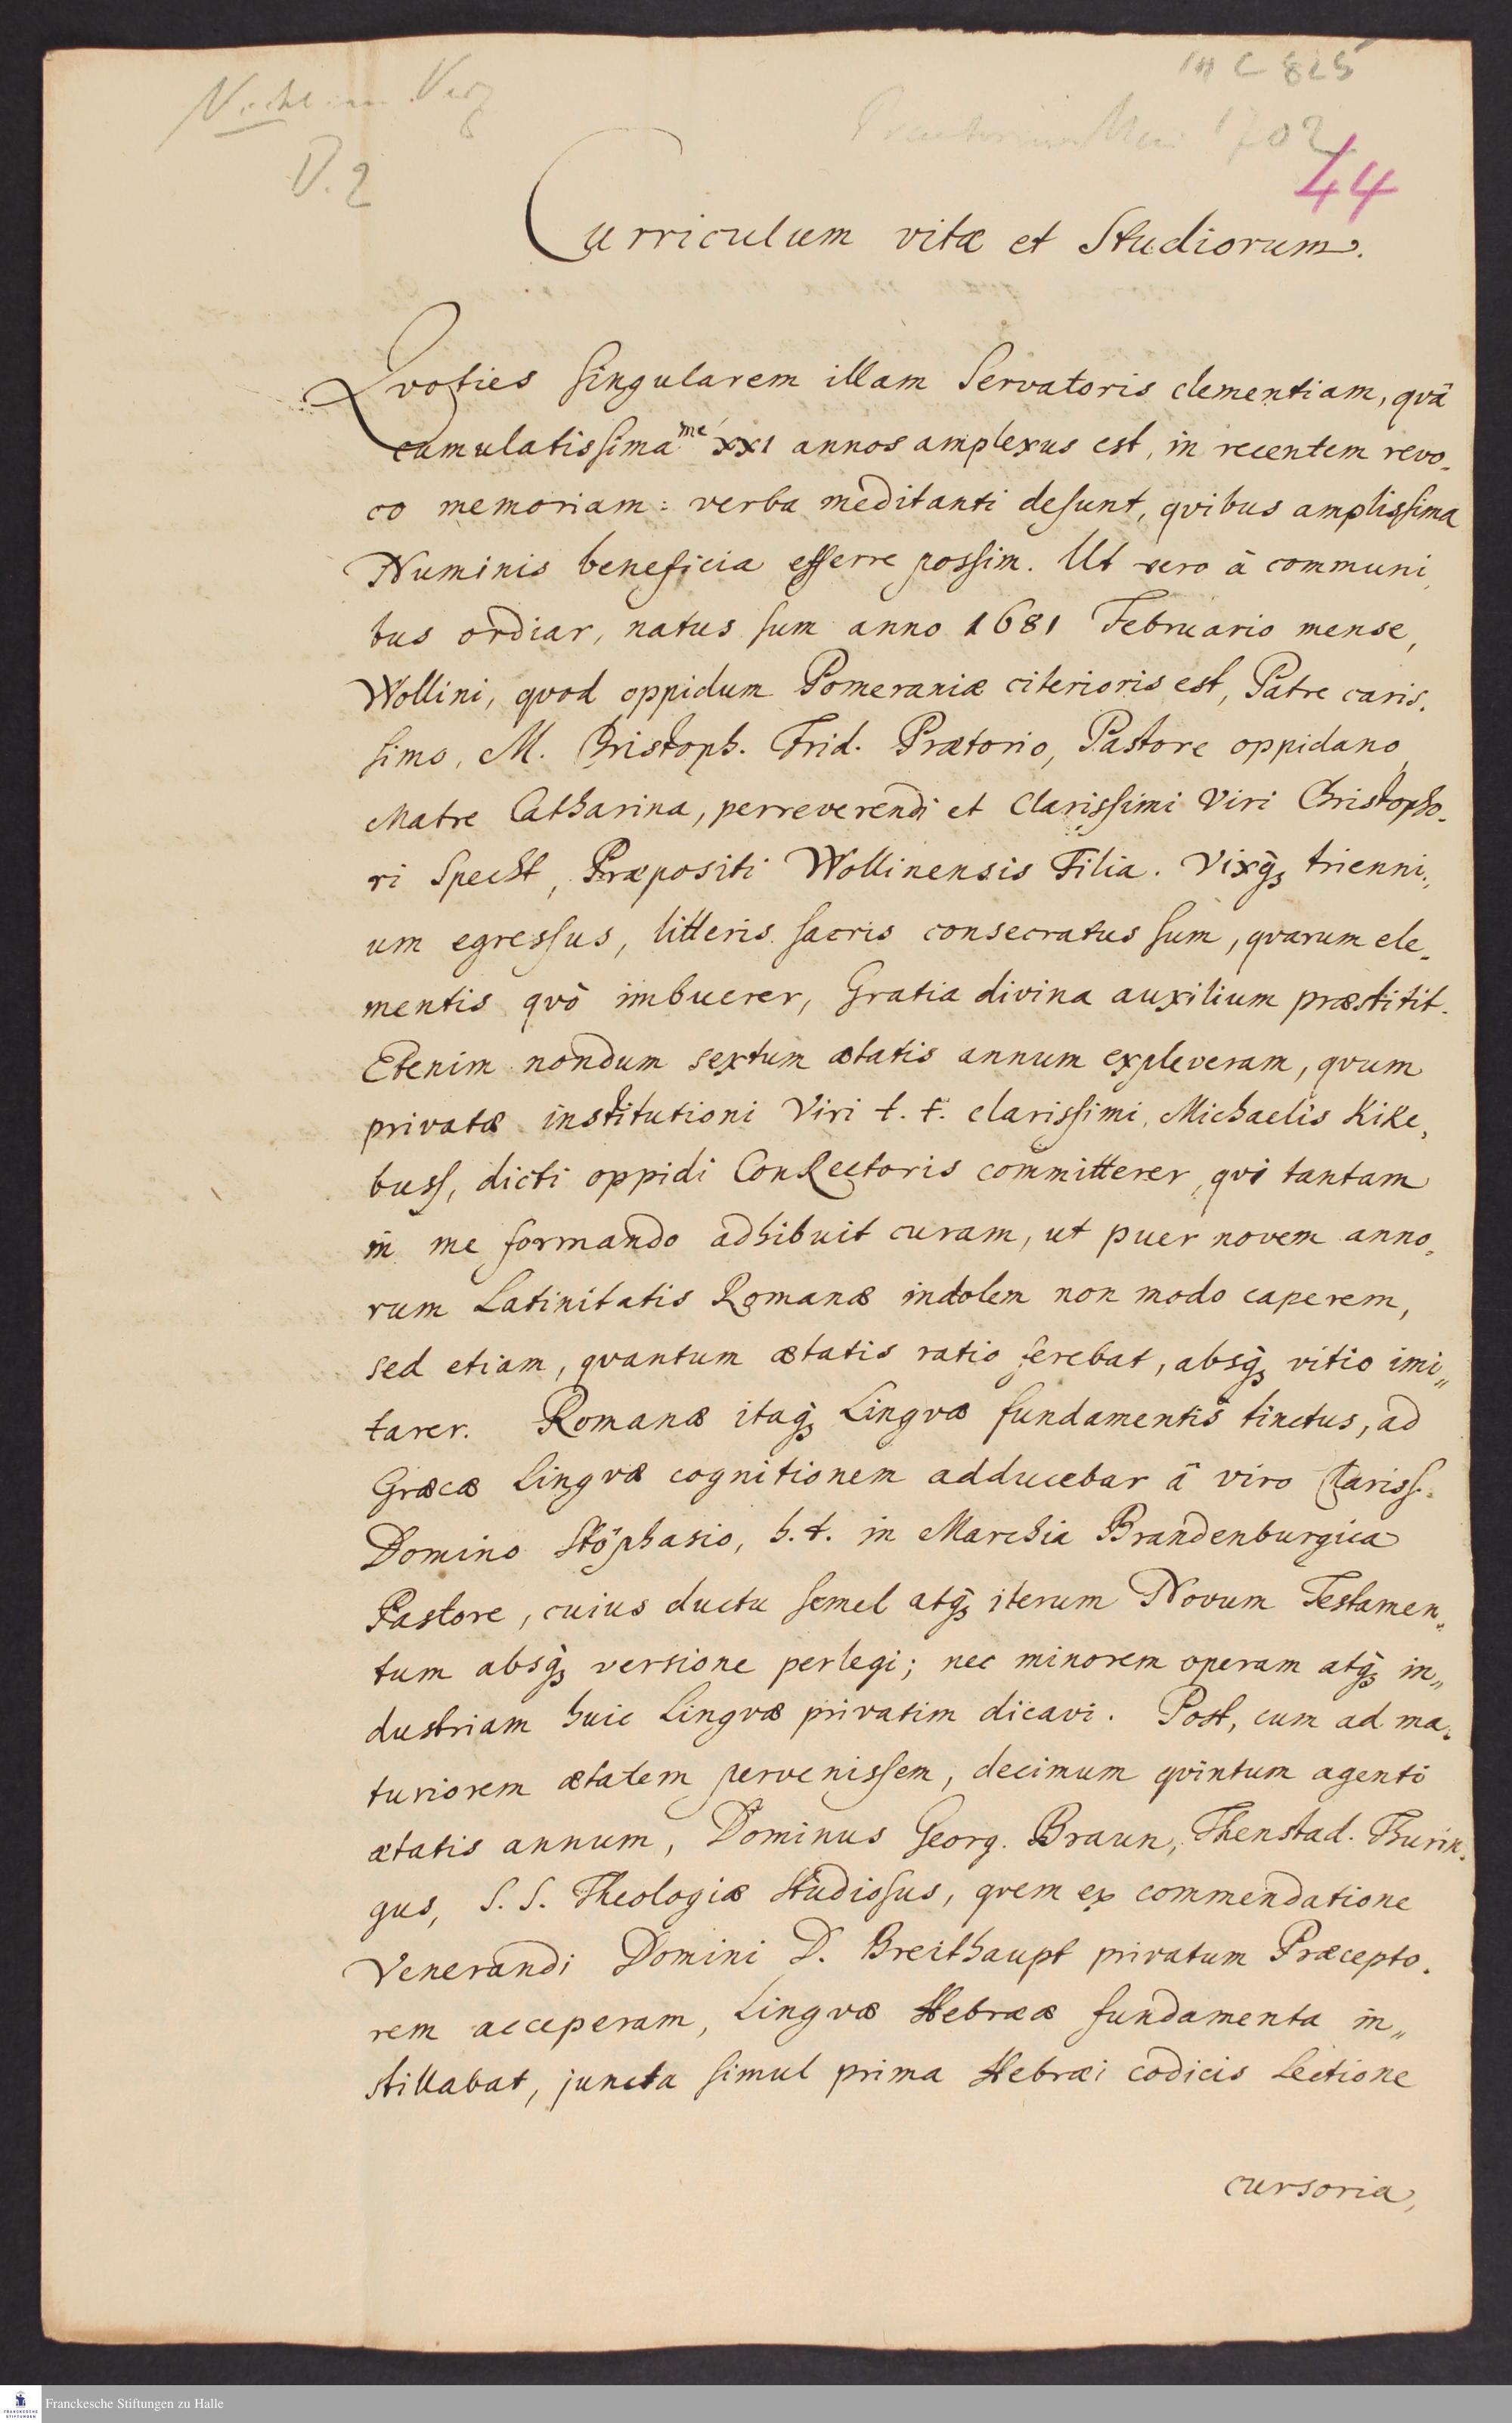 C 825
1702
44
D. 2
Curriculum vitæ et Studiorum.
Qvoties singularem illam Servatoris clementiam, qvâ
cumulatissima me XXI annos amplexus est, in recentem revo-
co memoriam: verba meditanti desunt, qvibus amplissima
Numinis beneficia efferre possim. Ut vero â communi
bus ordiar, natus sum anno 1681 Februario mense,
Wollini, qvod oppidum Pomeraniæ citerioris est, Patre caris-
simo, M. Christoph. Frid. Prætorio, Pastore oppidano,
Matre Catharina, perreverendi et Clarissimi Viri Christopho-
ri Specht, Præpositi Wollinensis Filia. Vixq; trienni-
um egressus, litteris sacris consecratus sum, qvarum ele-
mentis qvô imbuerer, Gratia divina auxilium præstitit.
Etenim nondum sextum ætatis annum expleveram, qvum
privatæ institutioni Viri t. t. clarissimi, Michaelis Kike-
buss, dicti oppidi ConRectoris committerer, qvi tantam
in me formando adhibuit curam, ut puer novem anno-
rum Latinitatis Romanæ indolem non modo caperem,
sed etiam, qvantum ætatis ratio ferebat, absq; vitio imi-
tarer. Romanæ itaq; Lingvæ fundamentis tinctus, ad
Græcæ Lingvæ cognitionem adducebar â viro Clariss.
Domino Stöphasio, h. t. in Marchia Brandenburgica
Pastore, cuius ductu semel atq; iterum Novum Testamen-
tum absq; versione perlegi; nec minorem operam atq; in-
dustriam huic Lingvæ privatim dicavi. Post, cum ad ma-
turiorem ætatem pervenissem, decimum qvintum agenti
ætatis annum, Dominus Georg. Braun, Thenstad. Thurin-
gus, S. S. Theologiæ Studiosus, qvem ex commendatione
Venerandi Domini D. Breithaupt privatum Præcepto-
rem acceperam, Lingvæ Hebrææ fundamenta in-
stillabat, juncta simul prima Hebræi codicis Lectione
cursoria,
Franckesche Stiftungen zu Halle